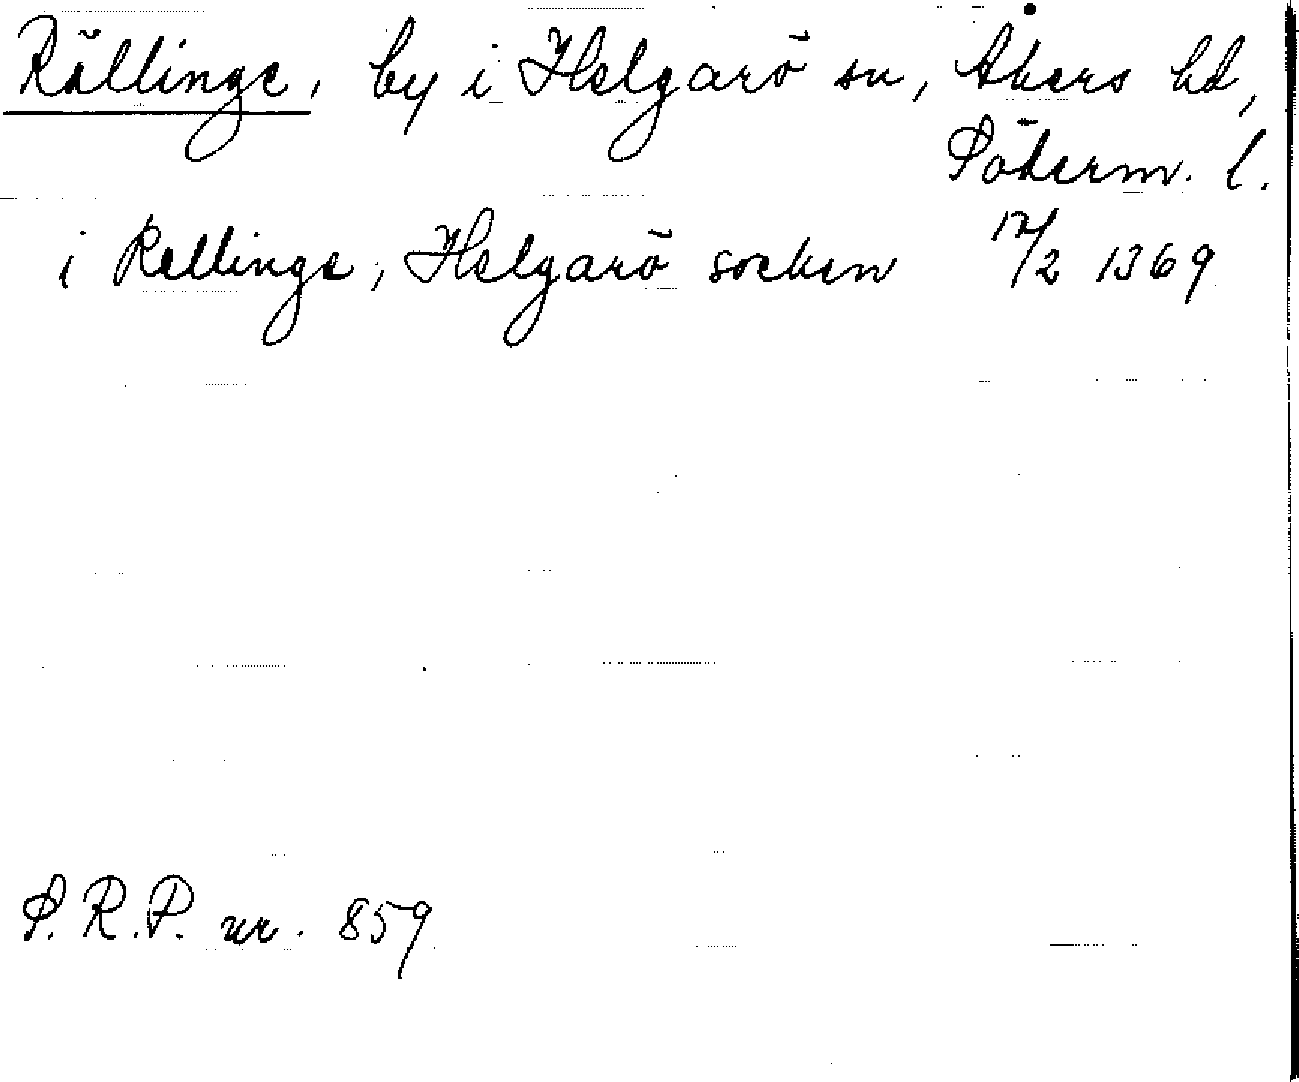 Rällinge, by i Helgarö sn, Åkers hd,
Söderm. l.
i Rellinge, Helgarö socken 12/2 1369
S.R.P. nr. 859